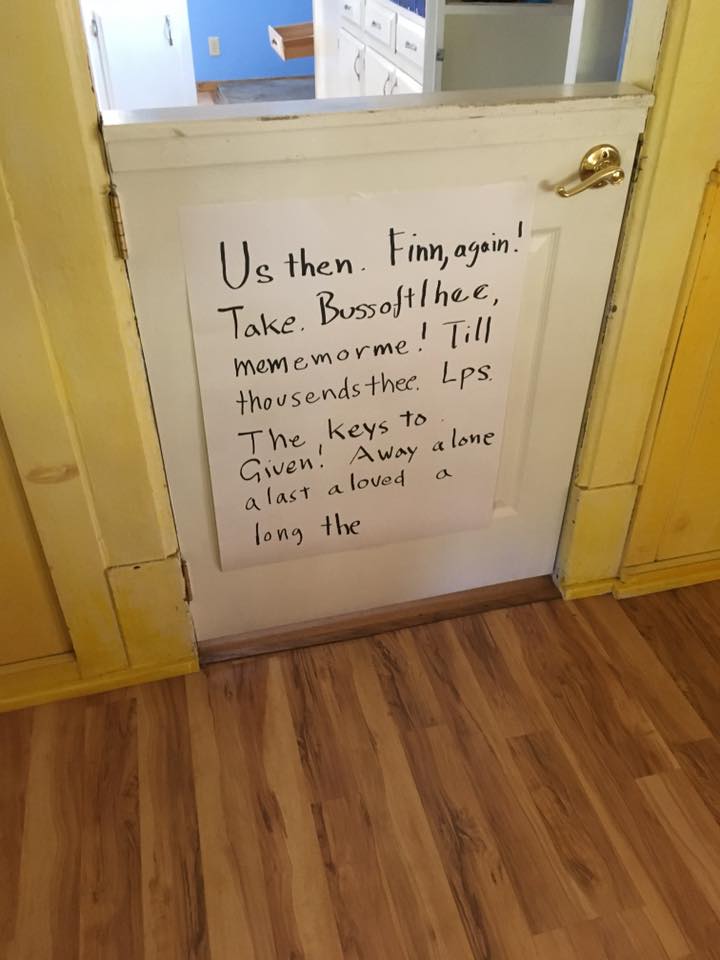 Us then. Finn, again!
Take. Bussoftlhee,
mememorme! Till
thousendsthee. Lps.
The keys to.
Given! Away alone
a last a loved a
long the